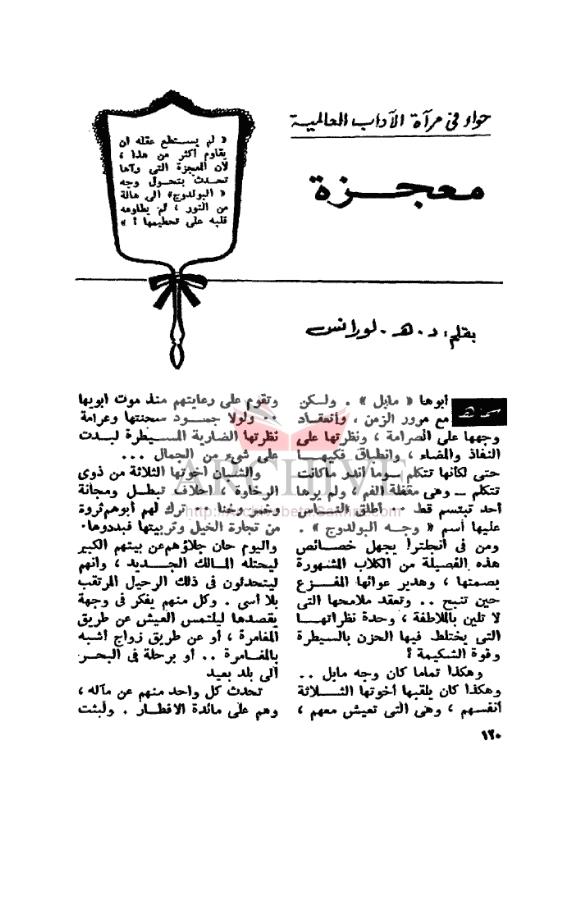 حواء فى مرآة الآداب العالمية
معجزة
« لم يستطع عقله ان
يقاوم أكثر من هذا ،
لأن المعجزة التى رآها
تحدث بتحول وجه
« البولدوج» الى هالة
من النور ، لم يطاوعه
قلبه على تحطيمها ! »
بقلم : د . هـ . لورانس
أبوها « مابل » . ولكن
مع مرور الزمن ، وانعقاد
وجهها على الصرامة ، ونظرتها على
النفاذ والمضاء ، وانطباق فكيهما
حتى لكأنها تتكلم ــ وما أندر ماكانت
تتكلم ــ وهى مقفلة الفم ، ولم يرها
أحد تبتسم قط .. أطلق الناس
عليها أسم « وجه البولدوج » .
ومن فى انجلترا يجهل خصائص
هذه الفصيلة من الكلاب المشهورة
بصمتها ، وهدير عوائها المفزع
حين تنبح .. وتعقد ملامحها التى
لا تلين بالملاطفة ، وحدة نظراتها
التى يختلط فيها الحزن بالسيطرة
وقوة الشكيمة ؟
وهكذا تماما كان وجه مابل ..
وهكذا كان يلقبها أخوتها الثلاثة
أنفسهم ، وهى التى تعيش معهم ،
وتقوم على رعايتهم منذ موت ابويها
.. ولولا جمود سحنتها وعرامة
نظرتها الضارية المسيطرة لبدت
على شىء من الجمال ...
والشبان أخوتها الثلاثة من ذوى
الرخاوة ، أحلاف تبطل ومجانة
وخمر وخنا .. ترك لهم أبوهم ثروة
من تجارة الخيل وتربيتها فبددوها .
واليوم حان جلاؤهم عن بيتهم الكبير
ليحتله المالك الجديد ، وانهم
ليتحدثون فى ذلك الرحيل المرتقب
بلا أسى . وكل منهم يفكر فى وجهة
يقصدها ليلتمس العيش عن طريق
المغامرة ، أو عن طريق زواج أشبه
بالمغامرة .. أو برحلة فى البحر
الى بلد بعيد
تحدث كل واحد منهم عن مآله ،
وهم على مائدة الافطار . ولبثت
١٢٠
ARCHIVE